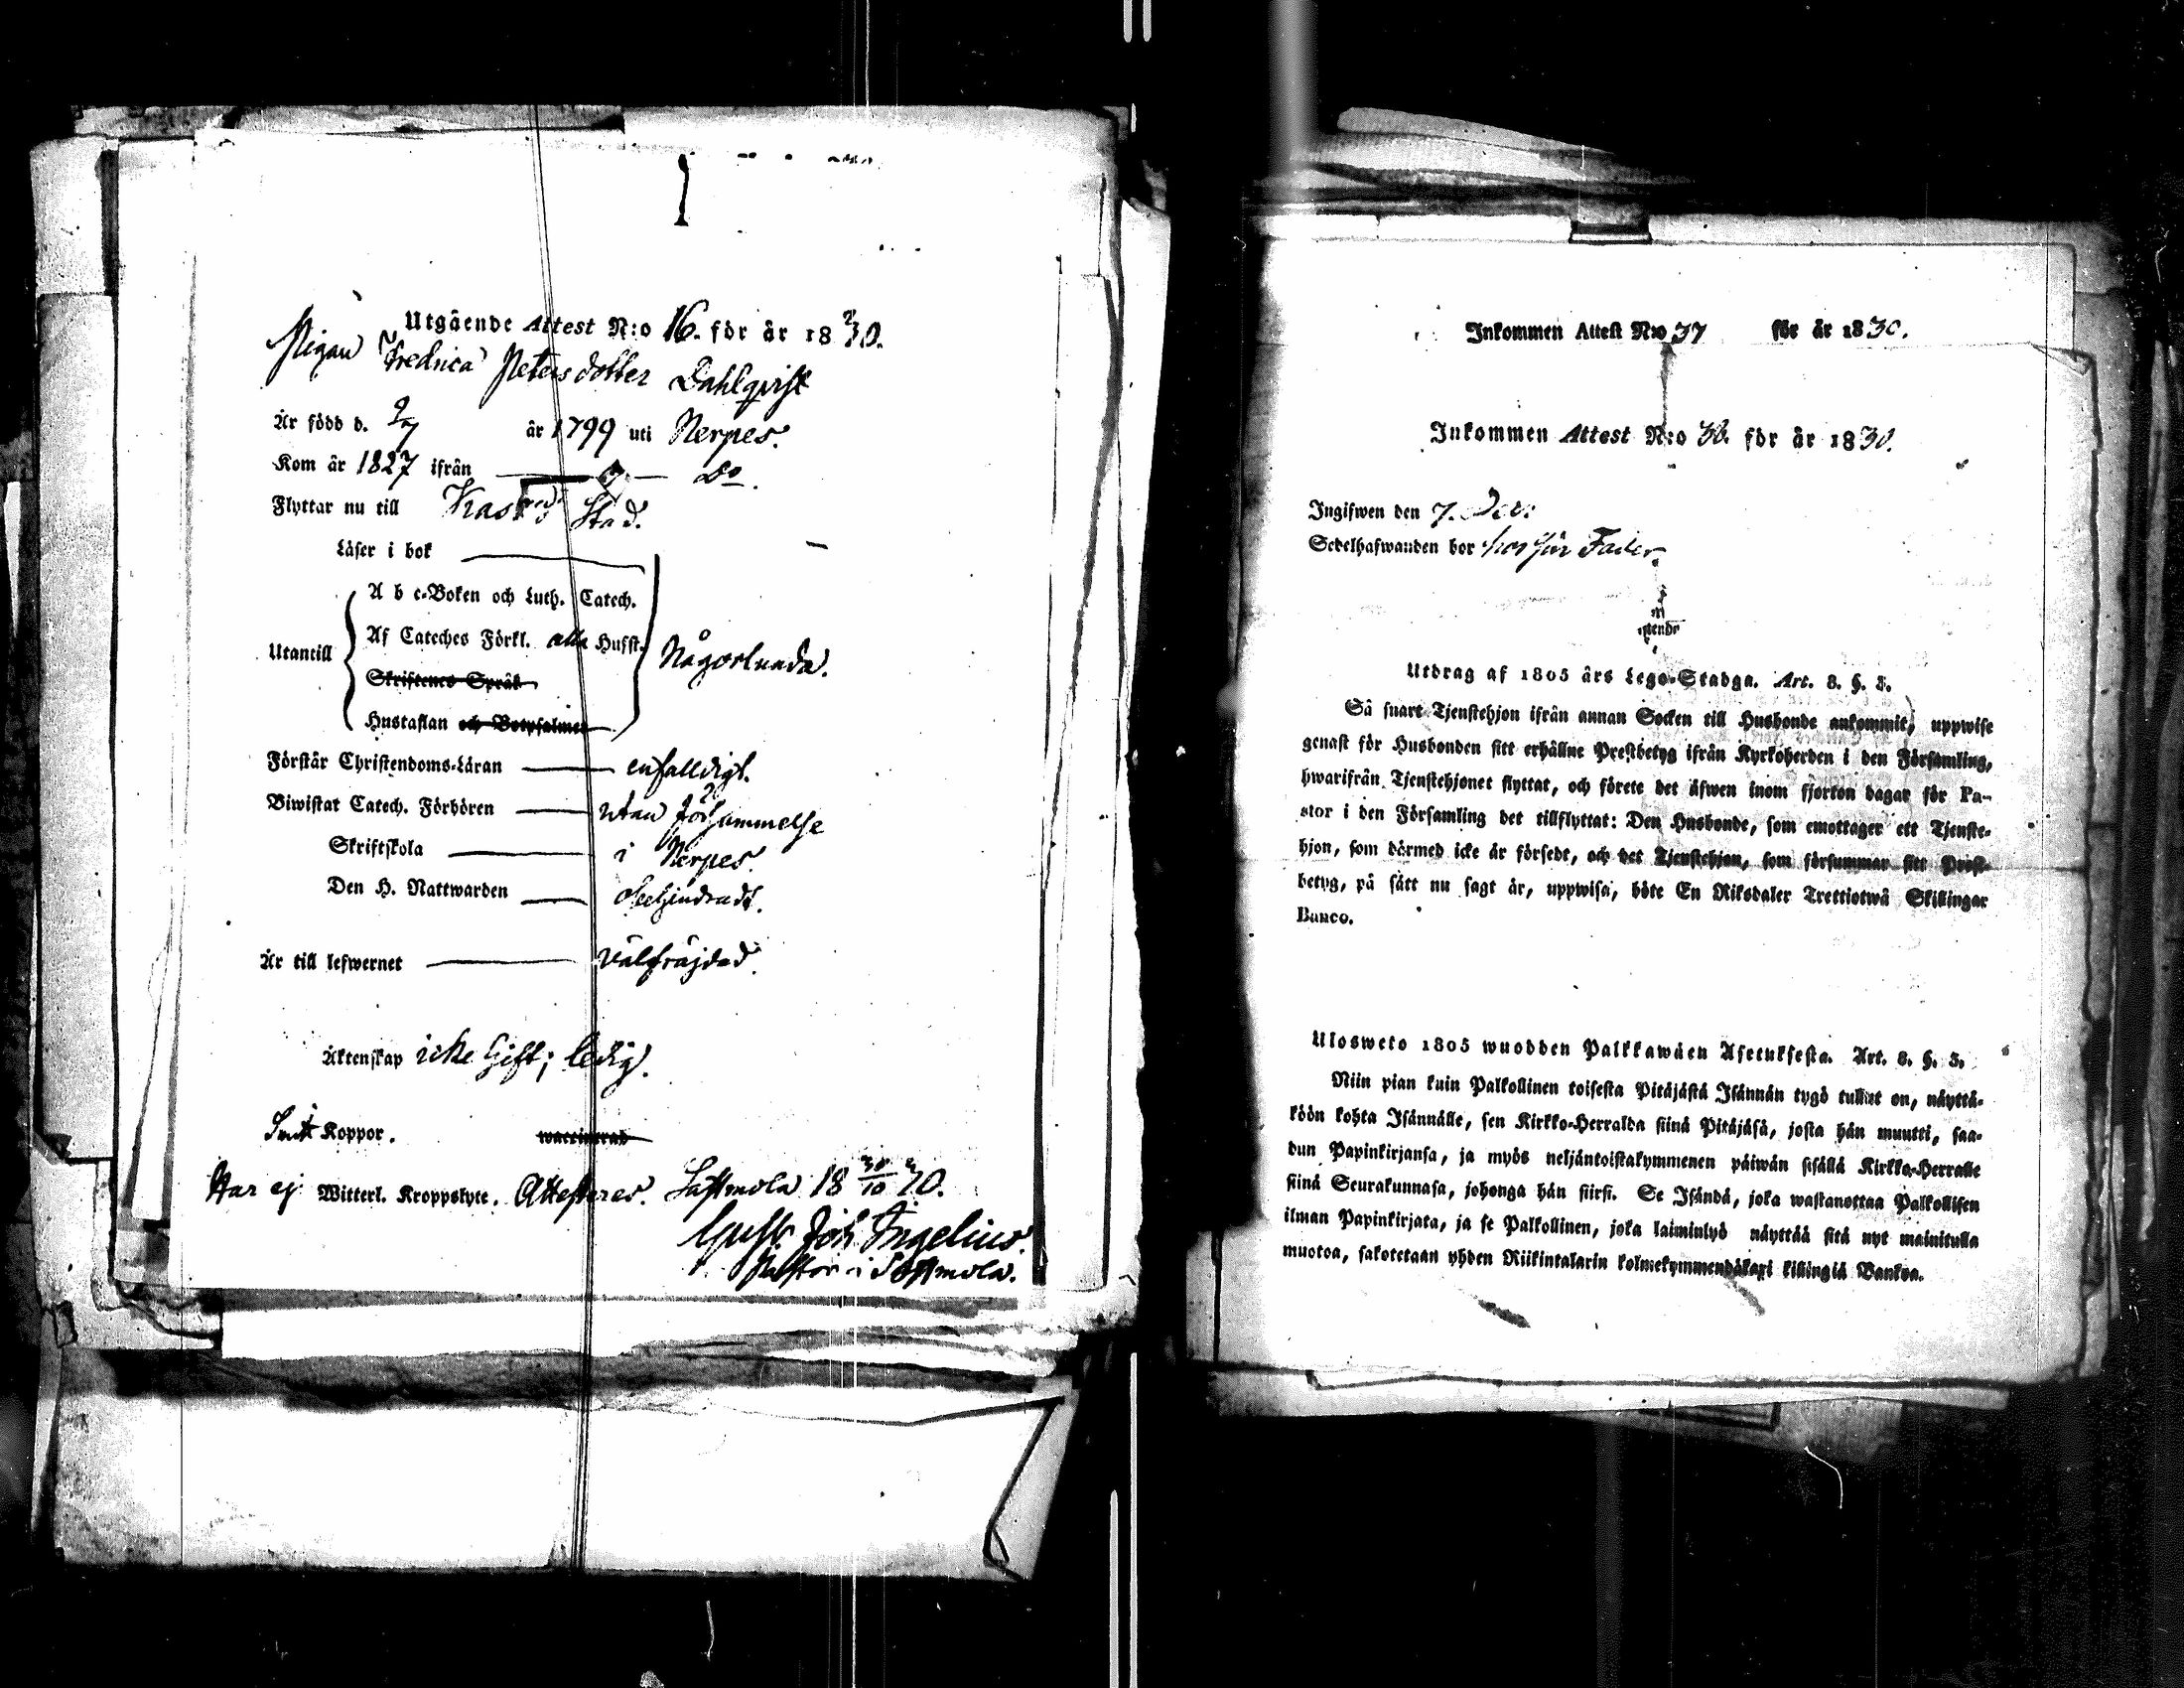 Utgående Attest N:o 16. för år 1830.
Pigan Fredrica Petersdotter Dahlqvist
Är född d. 9/7 år 1799 uti Nerpes.
Kom år 1827 ifrån Do.
Flyttar nu till Kasko Stad.
Läser i bok
A b c-Boken och Luth. Catech.
Af Cateches Förkl. alla Hufst.
Utantill Någorlunda.
Skriftenes Språk
Hustaflan och Botpsalmer
Förstår Christendoms-Läran enfalldigt.
Biwistat Catech. Förhören utan Försummelse
Skriftskola i Nerpes.
Den H. Nattwarden obehindradt.
Är till lefwernet välfräjdad.
Äktenskap icke Gift; ledig.
Haft Koppor. waccinerad
Har ej Witterl. Kroppslyte. Attesteras. Lappmola 18 30/10 30.
Gust. Joh. Ingelius.
Pastor i Lappmola.
Inkommen Attest N:o 37 för år 1830.
Inkommen Attest N:o 36. för år 1830.
Ingifwen den 7. Dec.
Sedelhafwanden bor hos sin Fader
Utdrag af 1805 års Lego-Stadga. Art. 8. §. 3.
Så snart Tjenstehjon ifrån annan Socken till Husbonde ankommit, uppwise
genast för Husbonden sitt erhållne Prestbetyg ifrån Kyrkoherden i den Församling,
hwarifrån Tjenstehjonet flyttat, och förete det äfwen inom fjorton dagar för Pa-
stor i den Församling det tillflyttat: Den Husbonde, som emottager ett Tjenste-
hjon, som därmed icke är försedt, och det Tjenstehjon, som försummar sitt Prest-
betyg, på sätt nu sagt är, uppwisa, böte En Riksdaler Trettiotwå Skillingar
Banco.
Ulosweto 1805 wuodden Palkkawäen Asetuksesta. Art. 8. §. 3.
Niin pian kuin Palkollinen toisesta Pitäjästä Isännän tygö tullut on, näyttä-
köön kohta Isännälle, sen Kirkko-Herralda siinä Pitäjäsä, josta hän muutti, saa-
dun Papinkirjansa, ja myös neljäntoistakymmenen päiwän sisällä Kirkko-Herralle
siinä Seurakunnasa, johonga hän siirsi. Se Isändä, joka wastanottaa Palkollisen
ilman Papinkirjata, ja se Palkollinen, joka laiminlyö näyttää sitä nyt mainitulla
muotoa, sakotetaan yhden Riikintalarin kolmekymmendäkaxi killingiä Bankoa.